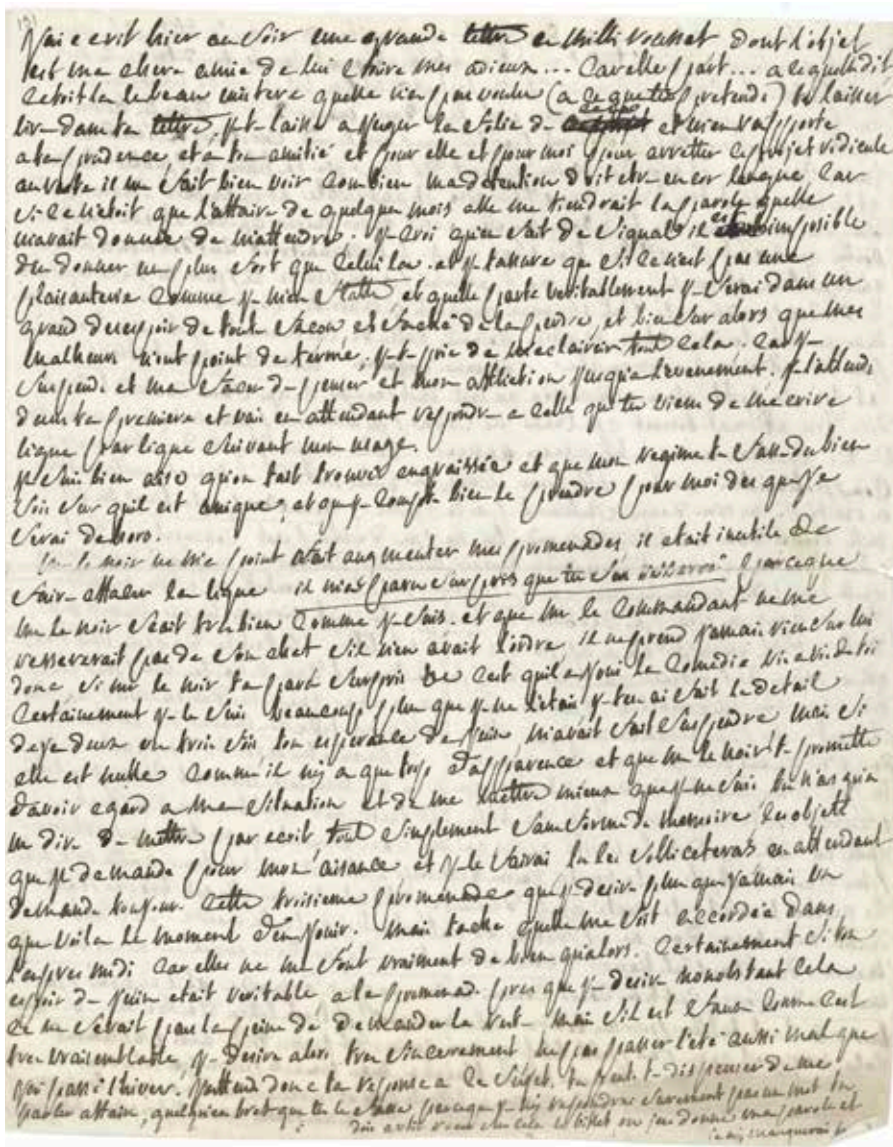 191
j'ai ecrit hier au soir une grande lettre a milli rousset dont l'objet
est ma chere amie de lui faire mes adieux... car elle part... a ce quelle dit
cetoit la le beau mistere quelle n'a pas voulu (a ce que tu pretends) te laisser
lire dans ta lettre, je te laisse a juger la folie de et m'en rapporte
a ta prudence, et a ton amitié et pour elle et pour moi pour arretter ce projet ridicule
au reste il me fait bien voir combien ma detention doit etre encor longue car
si ce n'etoit que l'affaire de quelque mois elle me tiendrait la parole quelle
m'avait donnée de m'attendre. je croi qu'en fait de signal il est impossible
d'en donner un plus fort que celui la. et je t'assure que si ce n'est pas une
plaisanterie comme je m'en flatte et quelle parte veritablement je serai dans un
grand desespoir de toute facon et faché de la perdre, et bien sur alors que mes
malheurs n'ont point de terme, je te prie de m'eclaircir tout cela. car je
suspend et ma facon de penser et mon affliction jusqu'a l'evenement. je l'attends
dans ta premiere et vais en attendant repondre a celle que tu viens de m'ecrire
ligne par ligne suivant mon usage.
je suis bien aise qu'on t'ait trouvée engraissée et que mon regime te fasse du bien
sois sur quil est unique, et que je compte bien le prendre pour moi des que je
serai dehors.
le noir ne m'a point fait augmenter mes promenades, il etait inutile de
faire effacer la ligne il m'a paru surpris que tu sois resserré parceque
mr le noir scait tres bien comme je suis. et que mr le commandant ne me
resserrerait pas de son chef s'il n'en avait l'ordre, il ne prend jamais rien sur lui
donc si mr le noir t'a paru surpris c'est quil a joué la comedie vis a vis de toi
certainement je le suis beaucoup plus que je ne l'etais je t'en ai fait le detail
deja deux ou trois fois ton esperance de juin m'avait fait suspendre mais si
elle est nulle comme il n'y a que trop d'apparence et que mr le noir te promette
d'avoir egard a ma situation et de me mettre mieux que je ne suis tu n'as qu'a
me dire de mettre par ecrit tout simplement sans forme de memoire les objets
que je demande pour mon aisance et je le fairai tu les solliciteras en attendant
demande toujours cette troisieme promenade que je desire plus que jamais vu
que voila le moment d'en jouir. mais tache quelle me soit accordée dans
l'apres midi car elles ne me font vraiment de bien qu'alors. certainement si ton
espoir de juin etait veritable a la promenade pres que je desire nonobstant cela
ce ne serait pas la peine de demander le reste mais s'il est faux comme c'est
tres vraisemblable je desire alors tres sincerement ne pas passer l'eté aussi mal que
j'ai passé l'hiver. j'attend donc ta reponse a ce sujet. tu peux te dispenser de me
parler affaire, quelqu'en bref que tu le fasse parceque je n'y repondrai surement pas un mot